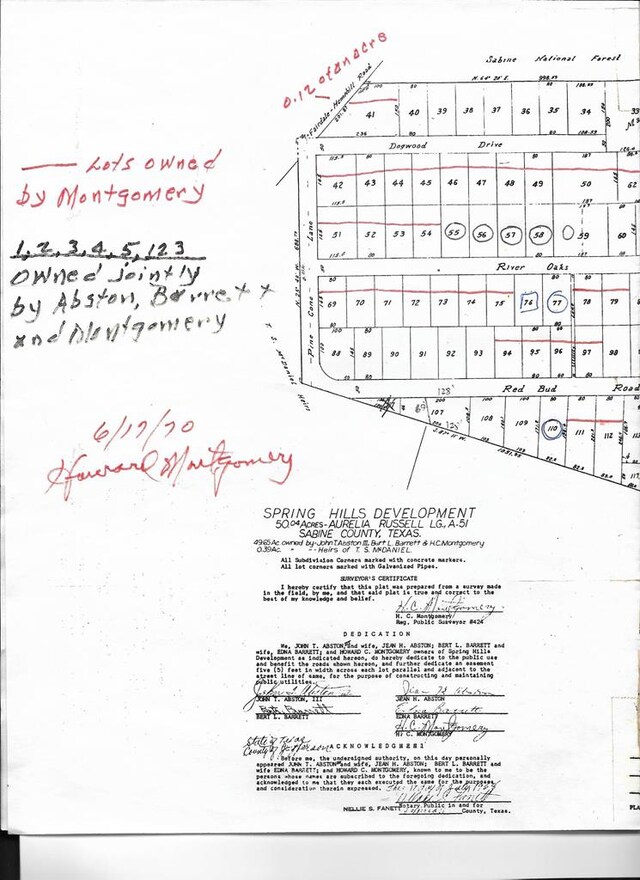 0.12 of an acre
Sabine National Forest
N. 64° 25' E. 998.00
Fairdale-Hemphill Road
41 40 39 38 37 36 35 34 33
Dogwood Drive
42 43 44 45 46 47 48 49 50 62
51 52 53 54 55 56 57 58 59 60
River Oaks
69 70 71 72 73 74 75 76 77 78 79
88 89 90 91 92 93 94 95 96 97 98
Red Bud Road
128
69 107 108 109 110 111 112
Pine Cone Lane
T. S. McDaniel Heirs
Lots owned
by Montgomery
1, 2, 3, 4, 5, 123
owned jointly
by Abston, Barrett
and Montgomery
6/17/70
Howard Montgomery
SPRING HILLS DEVELOPMENT
50.04 ACRES-AURELIA RUSSELL LG., A-51
SABINE COUNTY, TEXAS.
49.65 Ac owned by-John T. Abston III, Burt L. Barrett & H.C. Montgomery
0.39 Ac. " " -Heirs of T. S. McDANIEL.
All Subdivision Corners marked with concrete markers.
All lot corners marked with Galvanized Pipes.
SURVEYOR'S CERTIFICATE
I hereby certify that this plat was prepared from a survey made
in the field, by me, and that said plat is true and correct to the
best of my knowledge and belief.
H. C. Montgomery
H. C. Montgomery
Reg. Public Surveyor #424
DEDICATION
We, JOHN T. ABSTON, and wife, JEAN H. ABSTON; BERT L. BARRETT and
wife, EDNA BARRETT; and HOWARD C. MONTGOMERY owners of Spring Hills
Development as indicated hereon, do hereby dedicate to the public use
and benefit the roads shown hereon, and further dedicate an easement
five (5) feet in width across each lot parallel and adjacent to the
street line of same, for the purpose of constructing and maintaining
public utilities.
JOHN T. ABSTON, III JEAN H. ABSTON
BERT L. BARRETT EDNA BARRETT
H. C. Montgomery
H. C. MONTGOMERY
State of Texas
County of Jefferson
ACKNOWLEDGMENT
Before me, the undersigned authority, on this day personally
appeared JOHN T. ABSTON and wife, JEAN H. ABSTON; BERT L. BARRETT and
wife EDNA BARRETT; and HOWARD C. MONTGOMERY, known to me to be the
persons whose names are subscribed to the foregoing dedication, and
acknowledged to me that they each executed the same for the purposes
and consideration therein expressed.
NELLIE S. FANETT
Notary Public in and for
County, Texas.